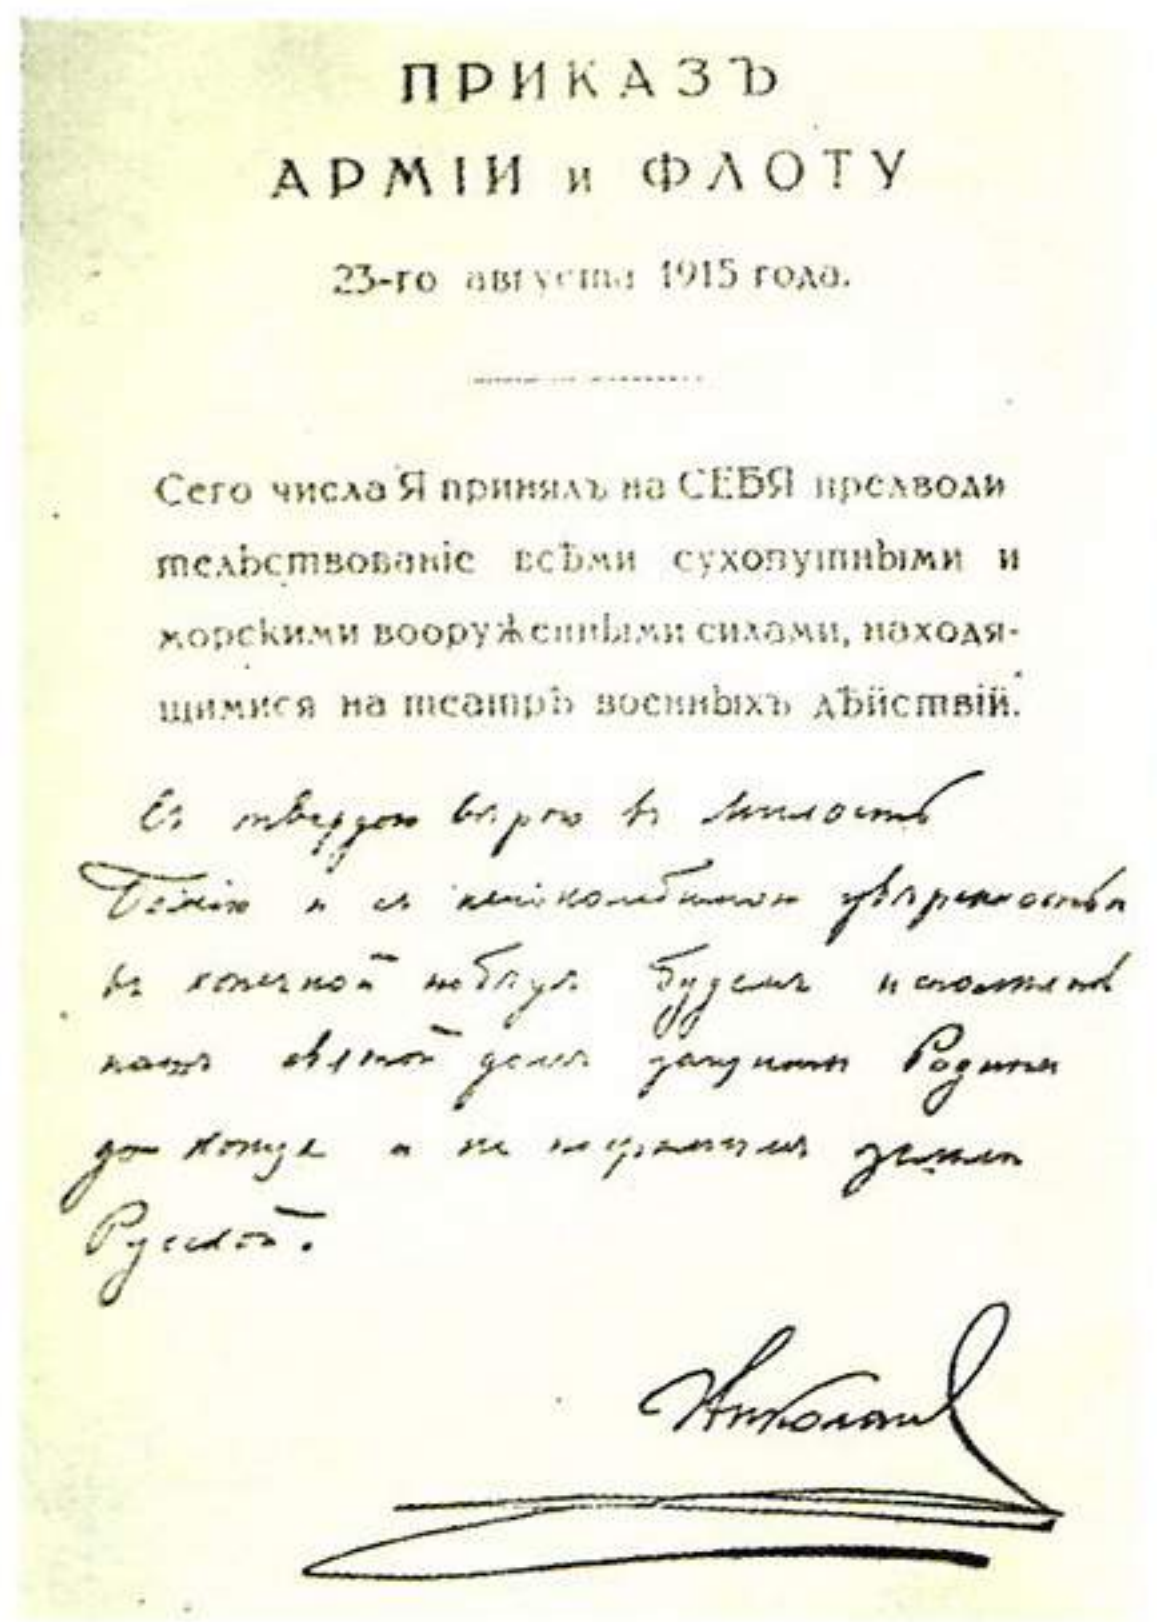 ПРИКАЗЪ
АРМІИ и ФЛОТУ
23-го августа 1915 года.
Сего числа Я принялъ на СЕБЯ предводи
тельствованіе всѣми сухопутными и
морскими вооруженными силами, находя-
щимися на театрѣ военныхъ дѣйствій.
Съ твердою вѣрою въ милость
Божію и съ непоколебимою увѣренностью
въ конечной побѣдѣ будемъ исполнять
нашъ святой долгъ защиты Родины
до конца и не посрамимъ земли
Русской.
Николай